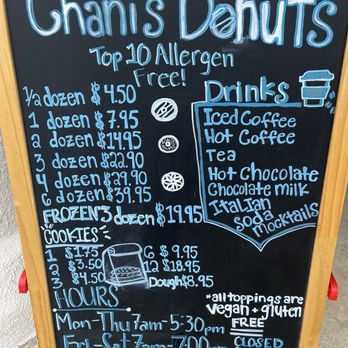 Chani's DoNuTS
Top 10 Allergen
Free!
1/2 dozen $4.50
1 dozen $7.95
2 dozen $14.95
3 dozen $22.90
4 dozen $29.90
6 dozen $39.95
FROZEN 3 dozen $19.95
Drinks
Iced Coffee
Hot Coffee
Tea
Hot Chocolate
Chocolate milk
Italian
Soda
mocktails
COOKIES
1 $1.75
2 $3.50
3 $4.50
6 $9.95
12 $18.95
Dough $8.95
HOURS
Mon-Thu 7am-5:30pm
Fri-Sat 7am-7:00pm
*all toppings are
vegan + gluten
FREE
CLOSED